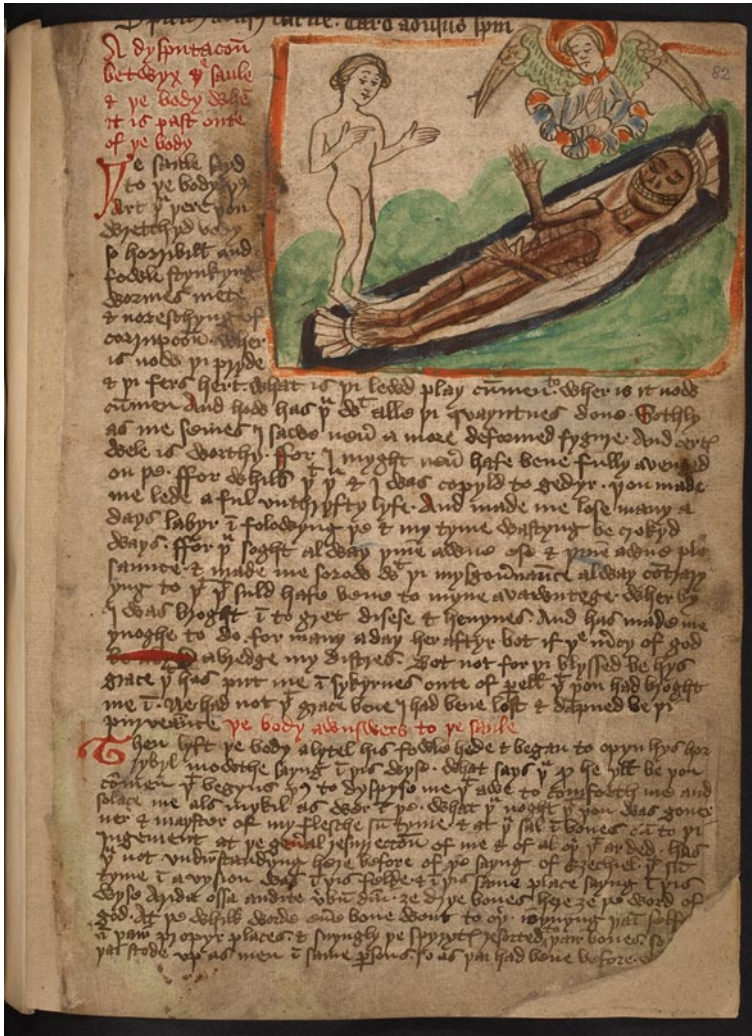 caro aduersus spm
82
A dysputacon
betwyx þe saule
& þe body whē
it is past oute
of þe body
Þe saule sayd
to þe body
Art þu þere þou
wretchyd body
so horribill and
fowle stynkyng
wormes mete
& noreschyng of
corrupcon. Wher
is now þi pryde
& þi fers hert. What is þi lewd play cūmen to. Wher is it now
cūmen And how has þu wt alle þi qwayntnes done. Sothly
as me semes I sawe neuer a more defoormed fygure. And
wele is worthy. ffor I myght neuer hafe bene fully avenged
on þe. ffor whils þt þu & I was copyld to gedyr. þou made
me lede a ful vnthryfty lyfe. And made me lose many a
days labyr ī folowyng þe & my tyme wastyng be crokyd
ways. ffor þu soght alway þine awne ese & þine awne ple
saunce. & made me sorow wt þi mysgouernaūce alway cōtrary
yng to þt þt suld hafe bene to myne avawntege. Wher by
I was broght ī to gret disese & heuynes. And has made me
ynoghe to do. for many a day her aftyr bot if þe mercy of god
abredge my distres. Bot not for þi blyssed be hys
grace þt has putt me ī sykyrnes oute of perell þt þou had broght
me ī. Ne had not þt grace bene I had bene lost & dāpned be þi
purveaunce þe body awnswers to þe saule
Then lyft þe body alytel his fowle hede & began to opyn hys hor
rybyl mowthe sayng ī þis wyse. What says þu
cōmen þt begyns to dyspyse me þt awe to comforth me and
solace me als mykil as What þu noght þt þou was gouer
ner & mayster of my flesche sū tyme. & at þu sal ī bones cū to þi
iugement at þe general resurreccon of me & of al oþer þt ar ded. has
þu not vndirstandyng here before of þe sayng of Ezechiel. þt sū
tyme ī a vysion was ī þis felde. & ī þis same place sayng ī þis
wyse Arida ossa audite verbū dni. ze drye bones here ze þe word of
god. At þe whilk worde bone went to oþer. ioynyng þaī self
ī þair propyr places. & the spyryt resorted to þair bones. so
þai stode vp as men ī same persons. so as þai had bene before.